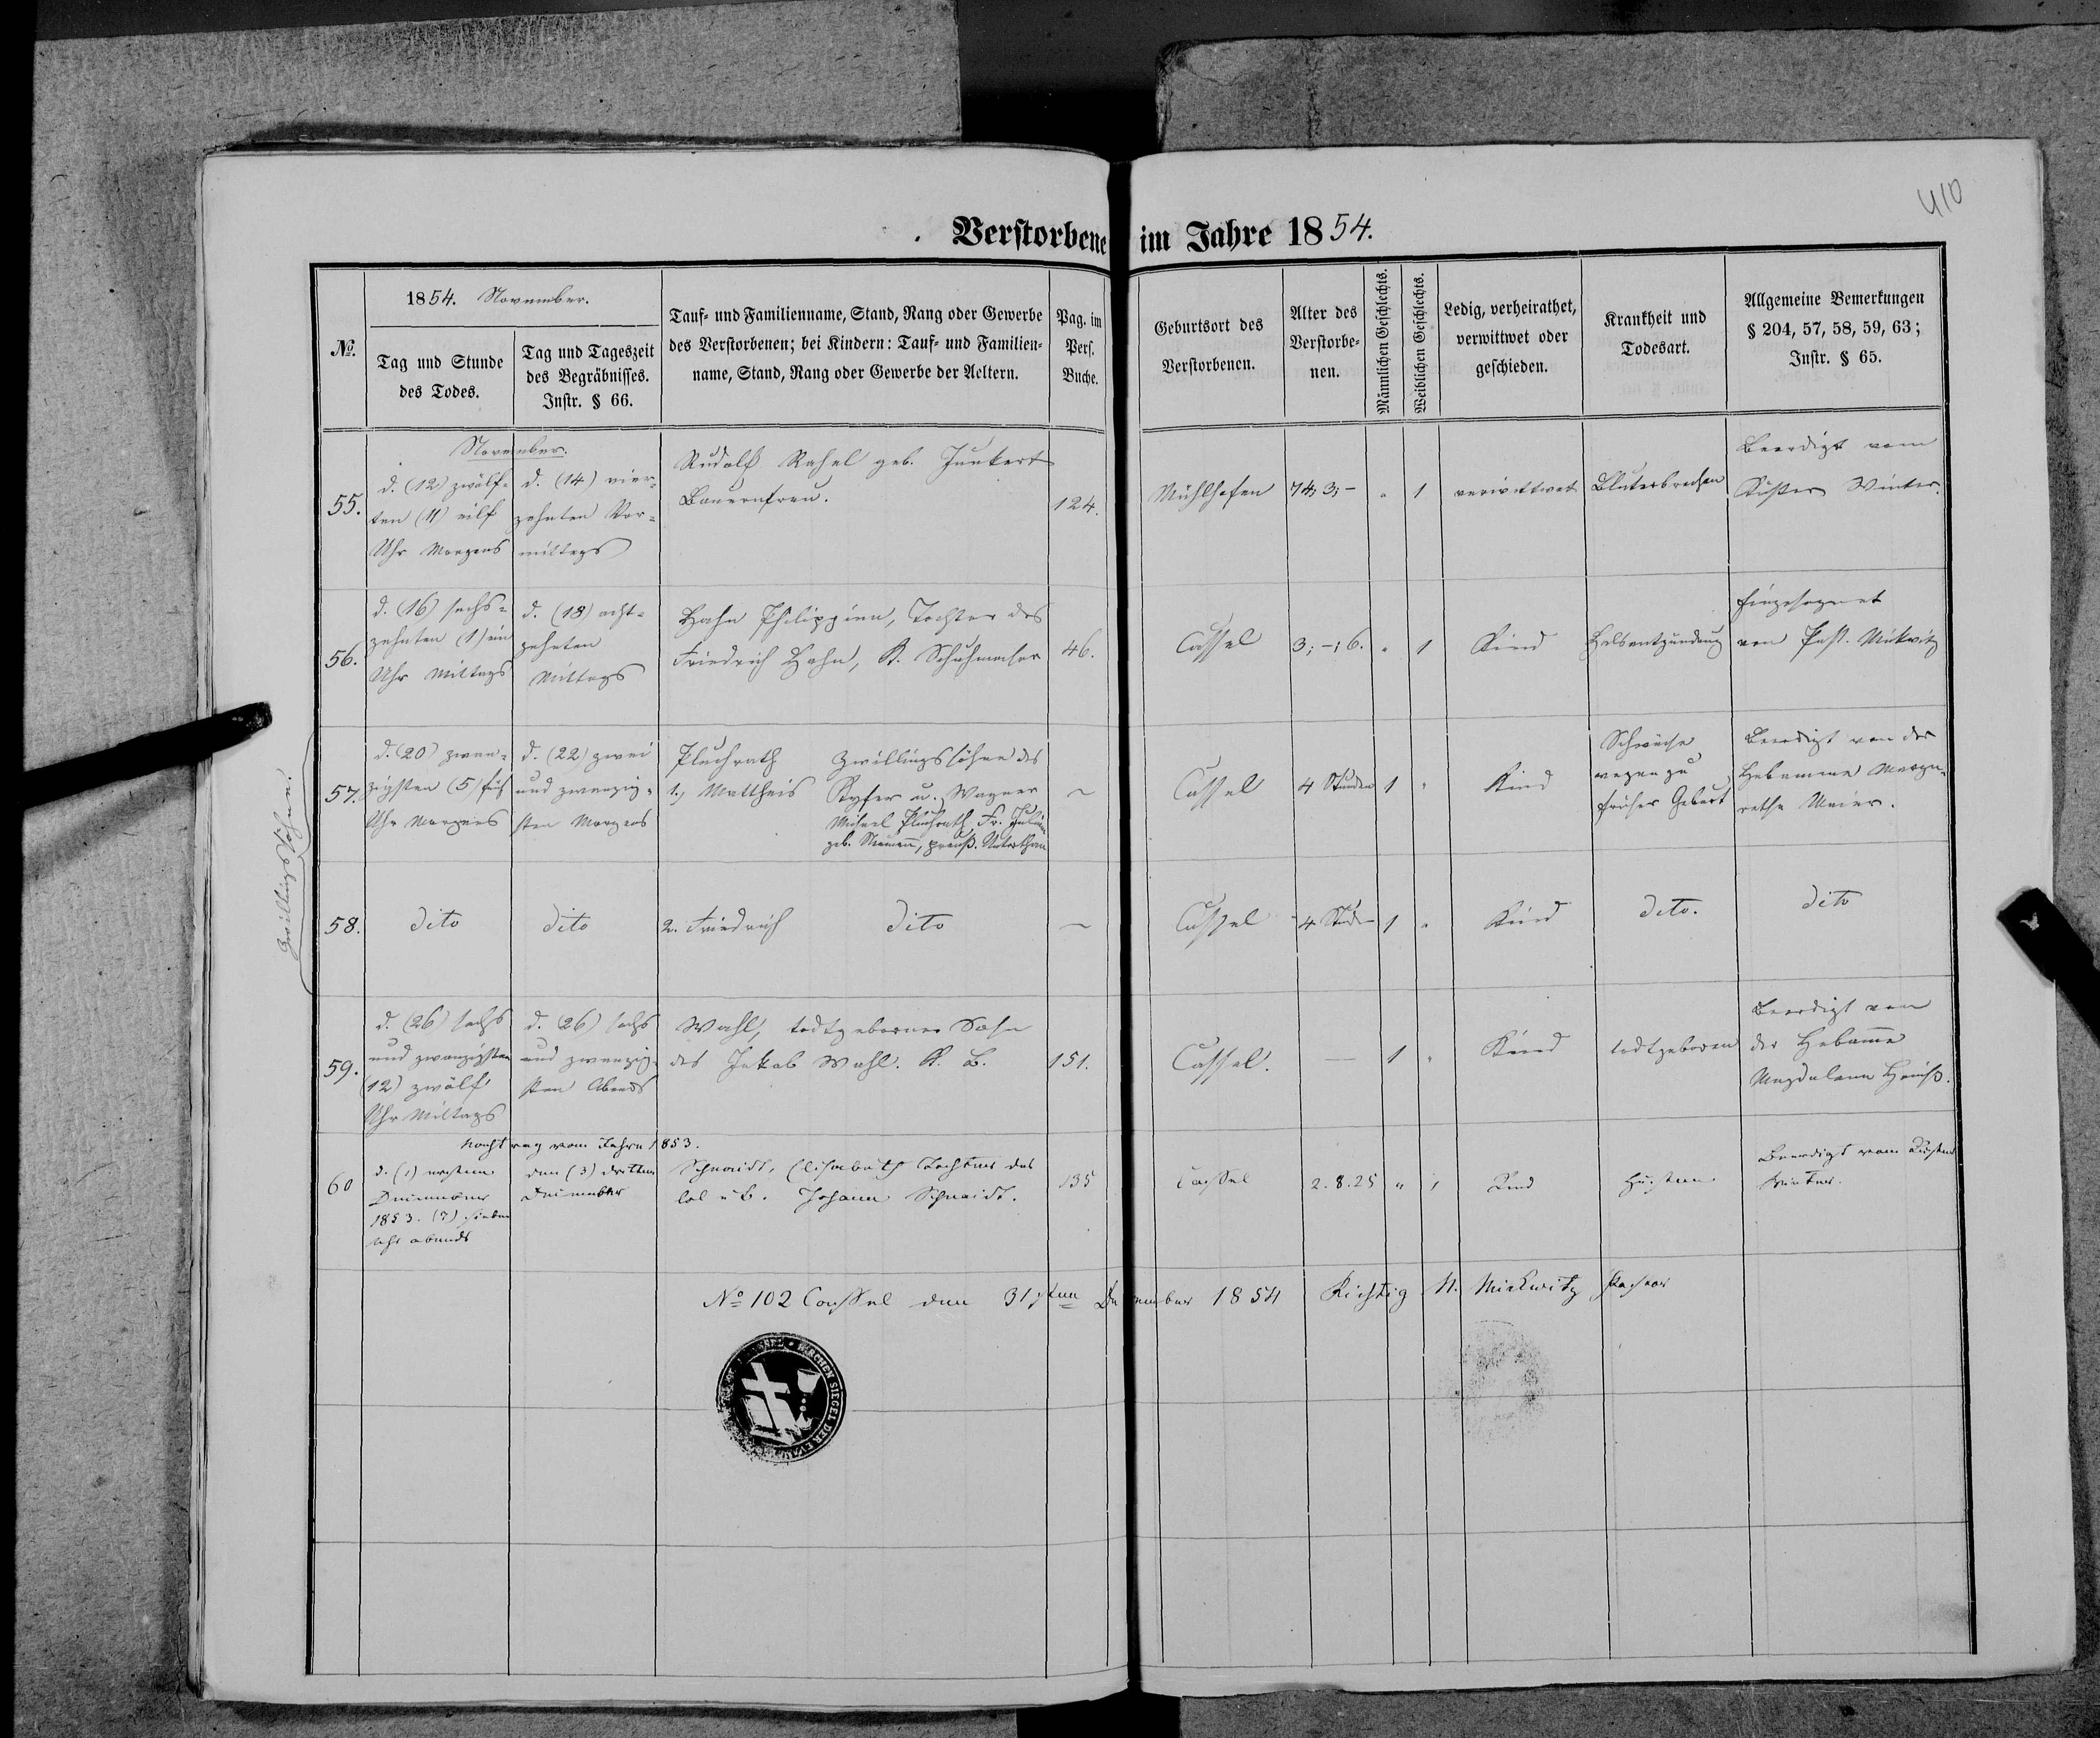 410
Verstorbene im Jahre 1854.
№.
1854. November.
Tag und Stunde
des Todes.
Tag und Tageszeit
des Begräbnisses.
Instr. § 66.
Tauf- und Familienname, Stand, Rang oder Gewerbe
des Verstorbenen; bei Kindern: Tauf- und Familien-
name, Stand, Rang oder Gewerbe der Aeltern.
Pag. im
Pers.
Buche.
Geburtsort des
Verstorbenen.
Alter des
Verstorbe-
nen.
Männlichen Geschlechts.
Weiblichen Geschlechts.
Ledig, verheirathet,
verwittwet oder
geschieden.
Krankheit und
Todesart.
Allgemeine Bemerkungen
§ 204, 57, 58, 59, 63;
Instr. § 65.
November.
55.
d. (12) zwölf-
ten (11) eilf
Uhr Morgens
d. (14) vier-
zehnten Vor-
mittags
Rudolf Rahel geb. Junkert
Bauernfrau.
124.
Mühlhofen
74, 3, -
" 1
verwittwet
Bluterbrechen
Beerdigt vom
Küster Winter.
56.
d. (16) sechs-
zehnten (1) ein
Uhr Mittags
d. (18) acht-
zehnten
Mittags
Hahn Philippina, Tochter des
Friedrich Hahn, K. Schuhmacher
46.
Cassel
3, -, 6.
" 1
Kind
Halsentzündung
Eingesegnet
von Past. Mickwitz
Zwillingssöhne.
57.
d. (20) zwan-
zigsten (5) fünf
Uhr Morgens
d. (22) zwei
und zwanzig-
sten Morgens
Pluchrath
1.) Mattheis
Zwillingssöhne des
Küfer u. Wagner
Michael Pluchrath Fr. Julia
geb. preuß. Unterthan
~
Cassel
4 Stunden
1 "
Kind
Schwäche
wegen zu
früher Geburt
Beerdigt von der
Hebamme Marga-
retha Maier.
58.
dito
dito
2. Friedrich dito
~
Cassel
4 Stund
1 "
Kind
dito.
dito
59.
d. (26) sechs
und zwanzigsten
(12) zwölf
Uhr Mittags
d. (26) sechs
und zwanzig-
sten Abends
Wahl, todtgeborner Sohn
des Jakob Wahl. K. B.
151.
Cassel.
—
1 "
Kind
todtgeboren
Beerdigt von
der Hebamme
Magdalena
Nachtrag vom Jahre 1853.
60
d. (1) ersten
December
1853. (7) sieben
Uhr abends
den (3) dritten
December
Schmidt, Elisabeth Tochter des
Johann Schmidt.
135
Cassel
2. 8. 25
" 1
Kind
Husten
Beerdigt vom Küster
Winter.
№ 102 Cassel den 31sten December 1854 Richtig N. Mickwitz Pastor
KIRCHEN SIEGEL DER EVANG